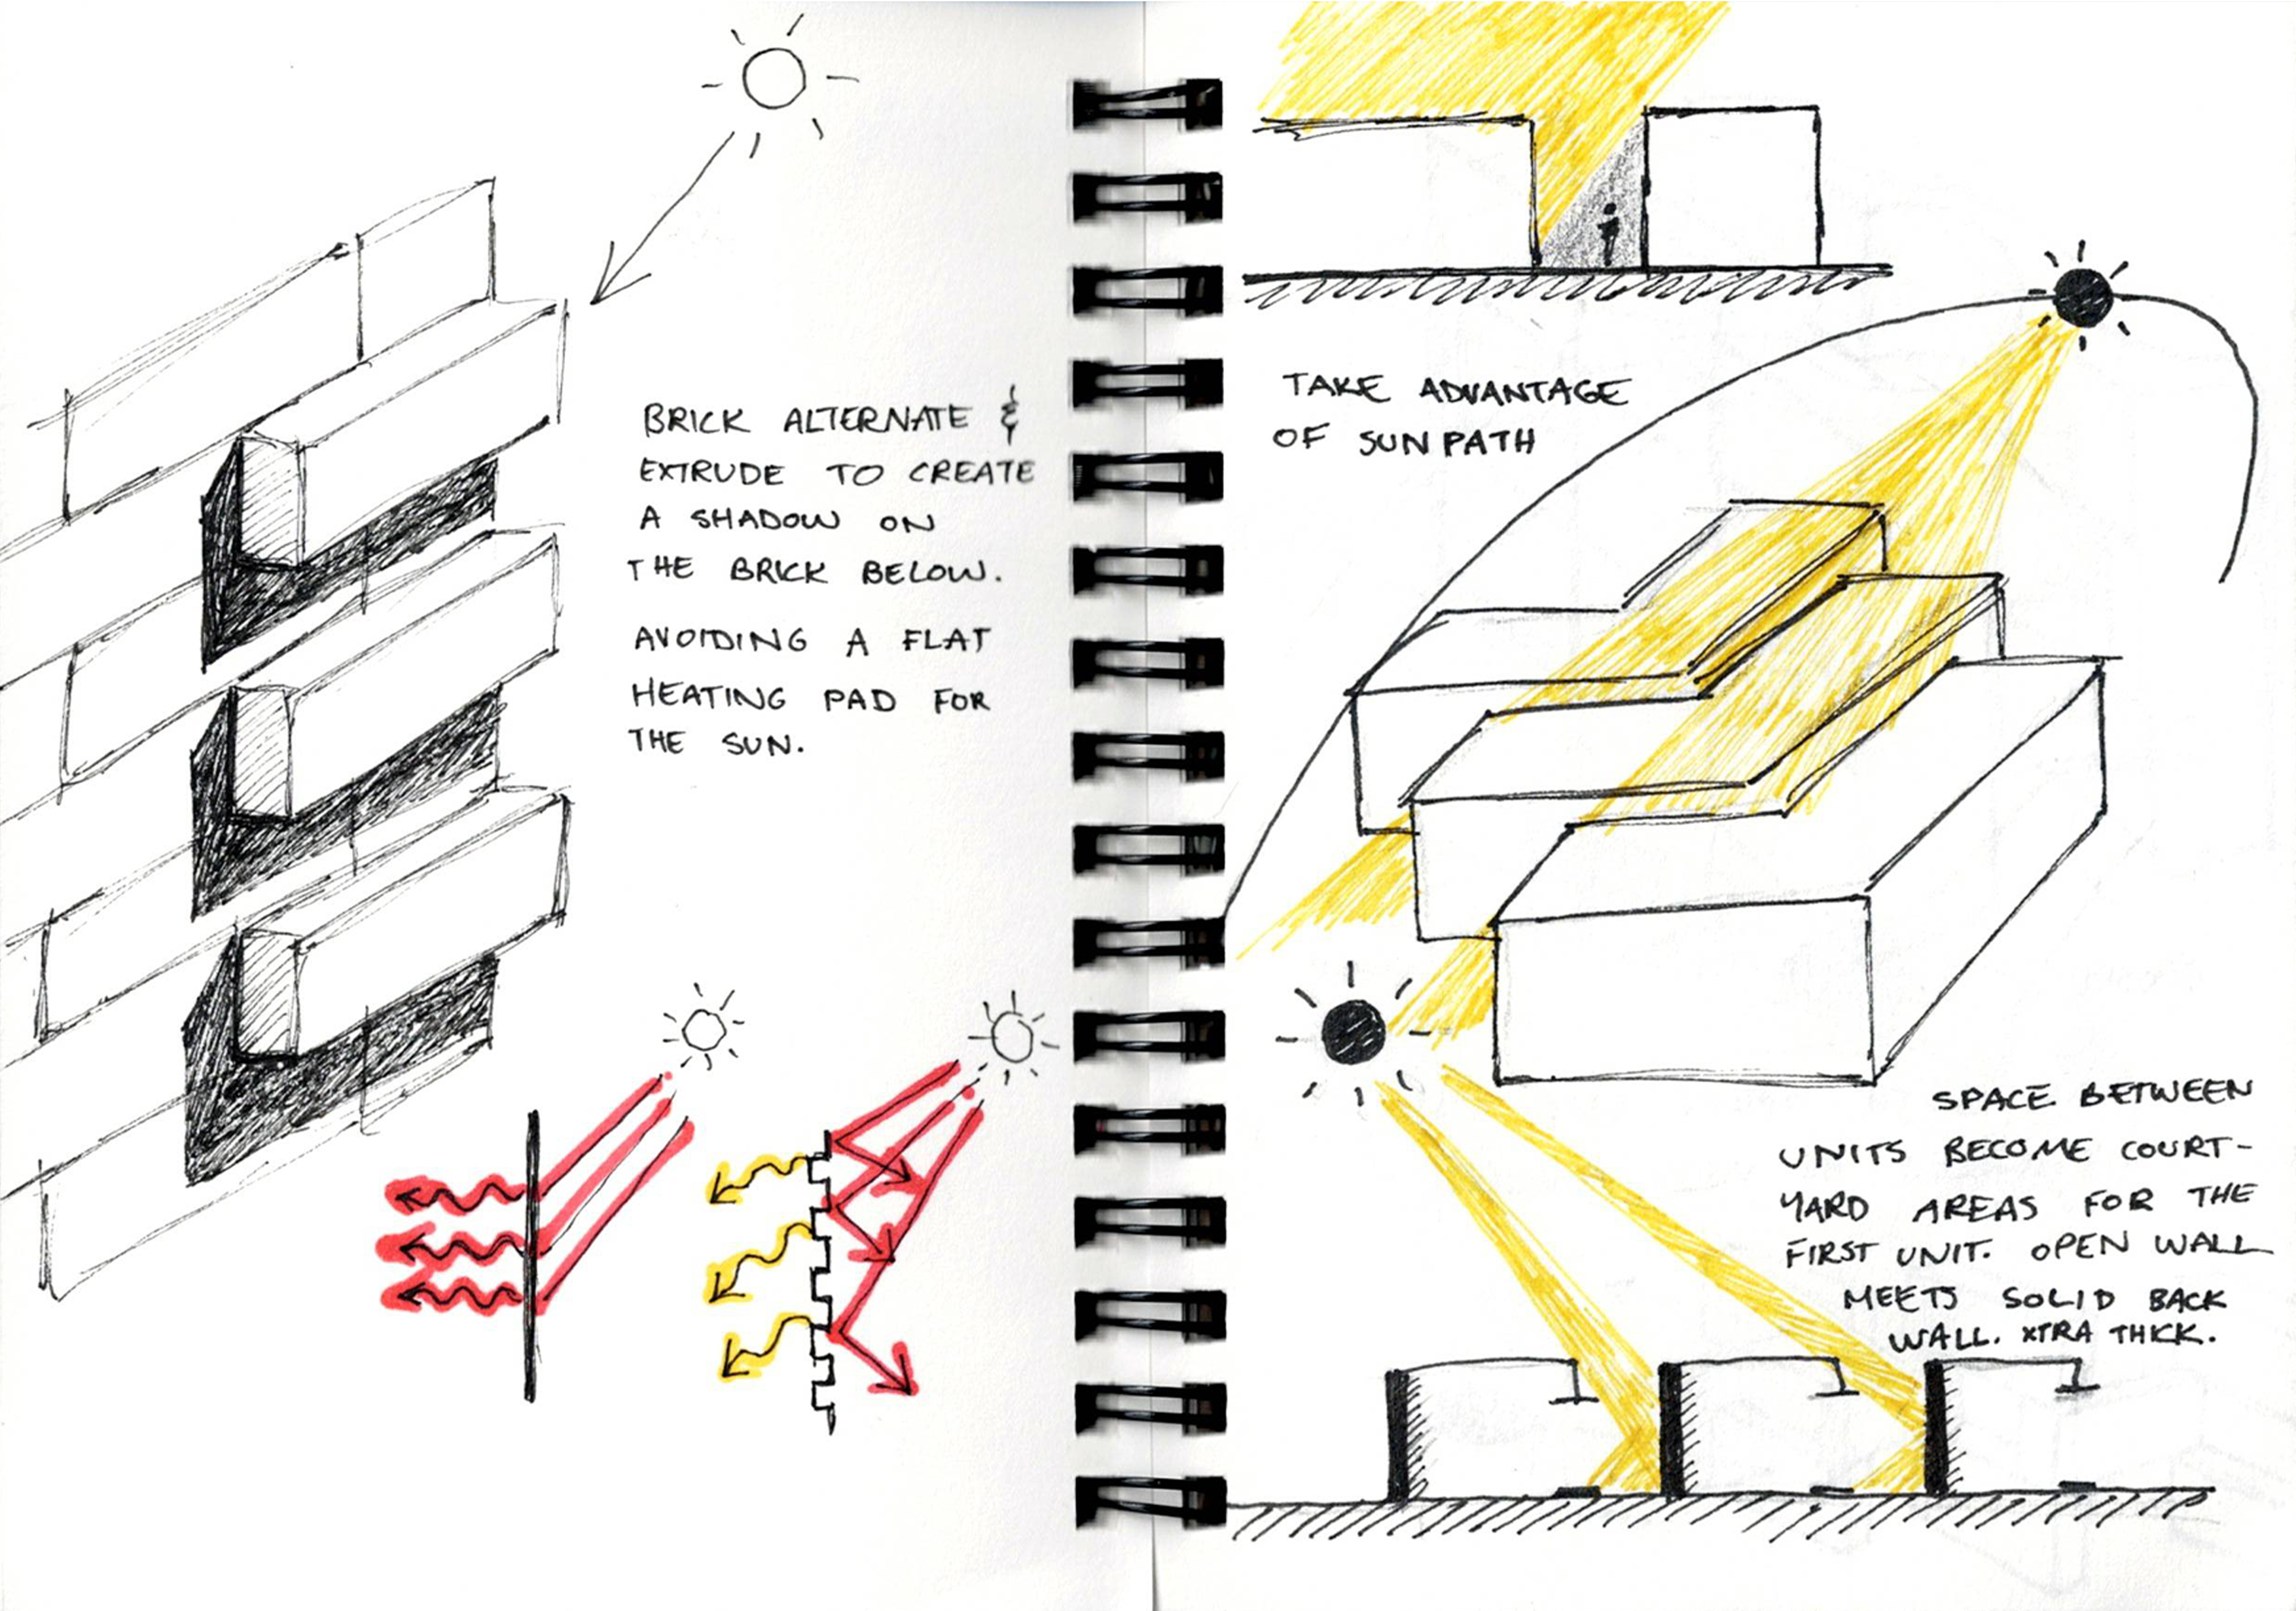 BRICK ALTERNATE &
EXTRUDE TO CREATE
A SHADOW ON
THE BRICK BELOW.
AVOIDING A FLAT
HEATING PAD FOR
THE SUN.
TAKE ADVANTAGE
OF SUN PATH
SPACE BETWEEN
UNITS BECOME COURT-
YARD AREAS FOR THE
FIRST UNIT. OPEN WALL
MEETS SOLID BACK
WALL. XTRA THICK.